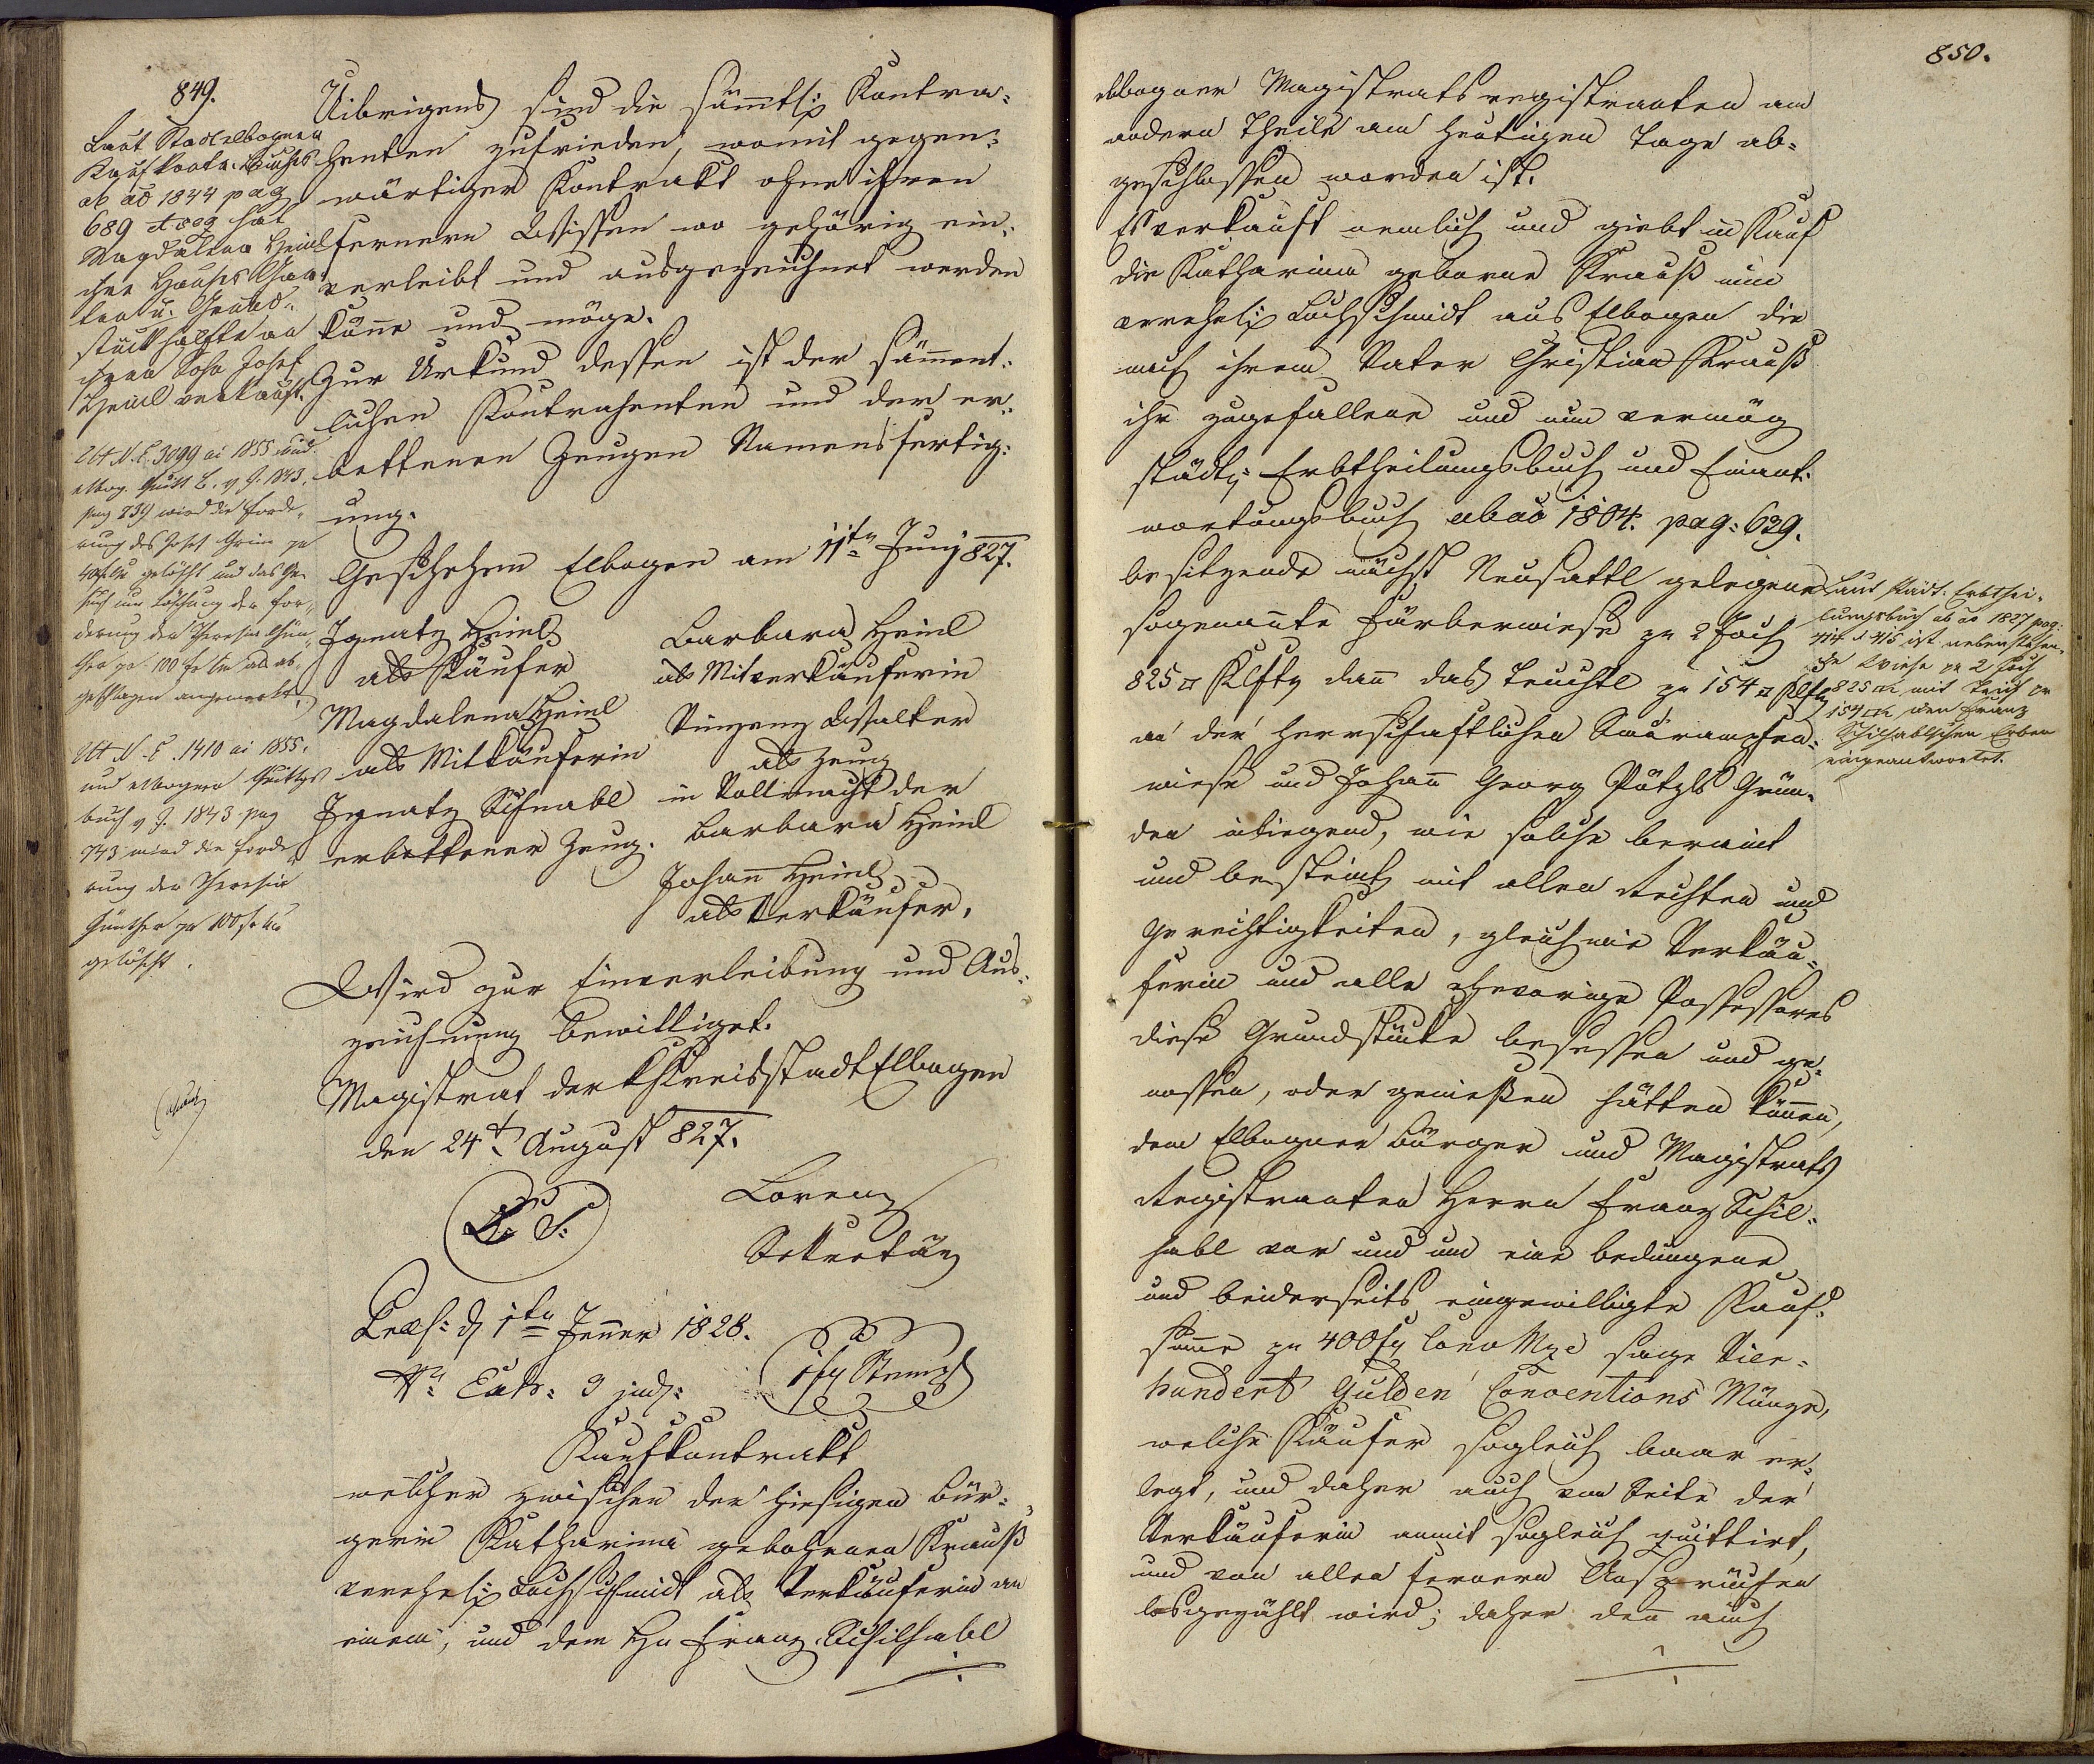 849.
Laut Stadtelbogner
Kaufkontr. Buches
ab ao 1844 pag
689 et seq hat
Magdalena Heinl
ihre Hauses Gar-
ten u. Grund-
stückhälfte an
ihren Sohn Josef
Heinl verkauft.
Ut N. E. 3099 ai 1855 und
elbog. Quitt B. v J. 1843.
pag 739 wird die Forde-
rung des Josef Grim pr
gelöscht und das Ge-
such um Löschung der For-
derung der Theresia Gün-
ther pr 100 fr als ab-
geschlagen angemerkt.
Ut N. E. 1410 ai 1855.
und elbogner Quittgs
buch v J. 1843 pag
743 wird die Forde-
rung der Theresia
Günther pr 100 fr
gelöscht.
Uibrigens sind die sämmtl: Kontra-
henten zufrieden, womit gegen-
wärtiger Kontrakt ohne ihren
fernern Wissen wo gehörig ein-
verleibt und ausgezeichnet werden
könne und möge.
Zur Urkund dessen ist der sämmt-
lichen Kontrahenten und der er-
bettenen Zeugen Namensfertig-
ung.
Geschehen Elbogen am 11ten Juny 827.
Ignatz Heinl
als Käufer
Magdalena Heinl
als Mitkäuferin
Ignatz Schnabl
erbettener Zeug.
Barbara Heinl
als Mitverkäuferin
Vinzenz Walter
als Zeug
in Vollmacht der
Barbara Heinl
Johann Heinl
als Verkäufer.
Wird zur Einverleibung und Aus-
zeichnung bewilliget.
Magistrat der k Kreisstadt Elbogen
den 24t August 827.
L. S.
Lorenz
Sekretär
Praes: d 1ten Jenner 1828.
Nr. Exh: 9 jud:
Kaufkontrakt
welcher zwischen der hiesigen Bür-
gerin Katharina gebohrnen Krauß
verehel: Lochschmidt als Verkäuferin an
einem, und dem Hn Franz Schilhabl
850.
elbogner Magistratsregistranten am
andern Theile am heutigen Tage ab-
geschlossen worden ist.
Es verkauft nemlich und giebt in Kauf
die Katharina geborne Krauß nun
verehel: Lochschmidt aus Elbogen die
nach ihrem Vater Christian Krauß
ihr zugefallene und nun vermög
städt: Erbtheilungsbuch und Einant-
wortungsbuch ab ao 1804. pag: 639.
besitzende nächst Neusattl gelegene
sogenannte Färberwiese zu 2 Joch
825 □ Klftr dann das Teuchtl zu 154 □ Klftr
an der herrschaftlichen
wiese und Johann Georg Pötzls Grün-
den inliegend, wie solche beraint
und besteint mit allen Rechten und
Gerechtigkeiten, gleichwie Verkäu-
ferin und alle ehevorige Possessores
diese Grundstücke besessen und ge-
nossen, oder genießen hätten können,
dem Elbogner Bürger und Magistrats
Registranten Herrn Franz Schil-
habl vor und um eine bedungene
und beiderseits eingewilligte Kauf-
summe zu 400 fr Conv Mze sage Vier-
hundert Gulden Conventions Münze,
welche Käufer sogleich baar er-
legt, und daher auch von Seite der
Verkäuferin anmit sogleich quittirt,
und von allen fernern Ansprüchen
losgezählt wird; daher denn auch
Laut städt: Erbthei-
lungsbuch ab ao 1827 pag:
414 & 415 ist nebenstehen-
de Wiese pr 2 Joch
825 □ mit Teich pr
154 □ den Franz
Schilhablschen Erben
eingeantwortet.